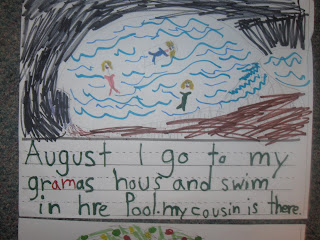 August I go to my
gramas hous and swim
in hre Pool. my cousin is there.